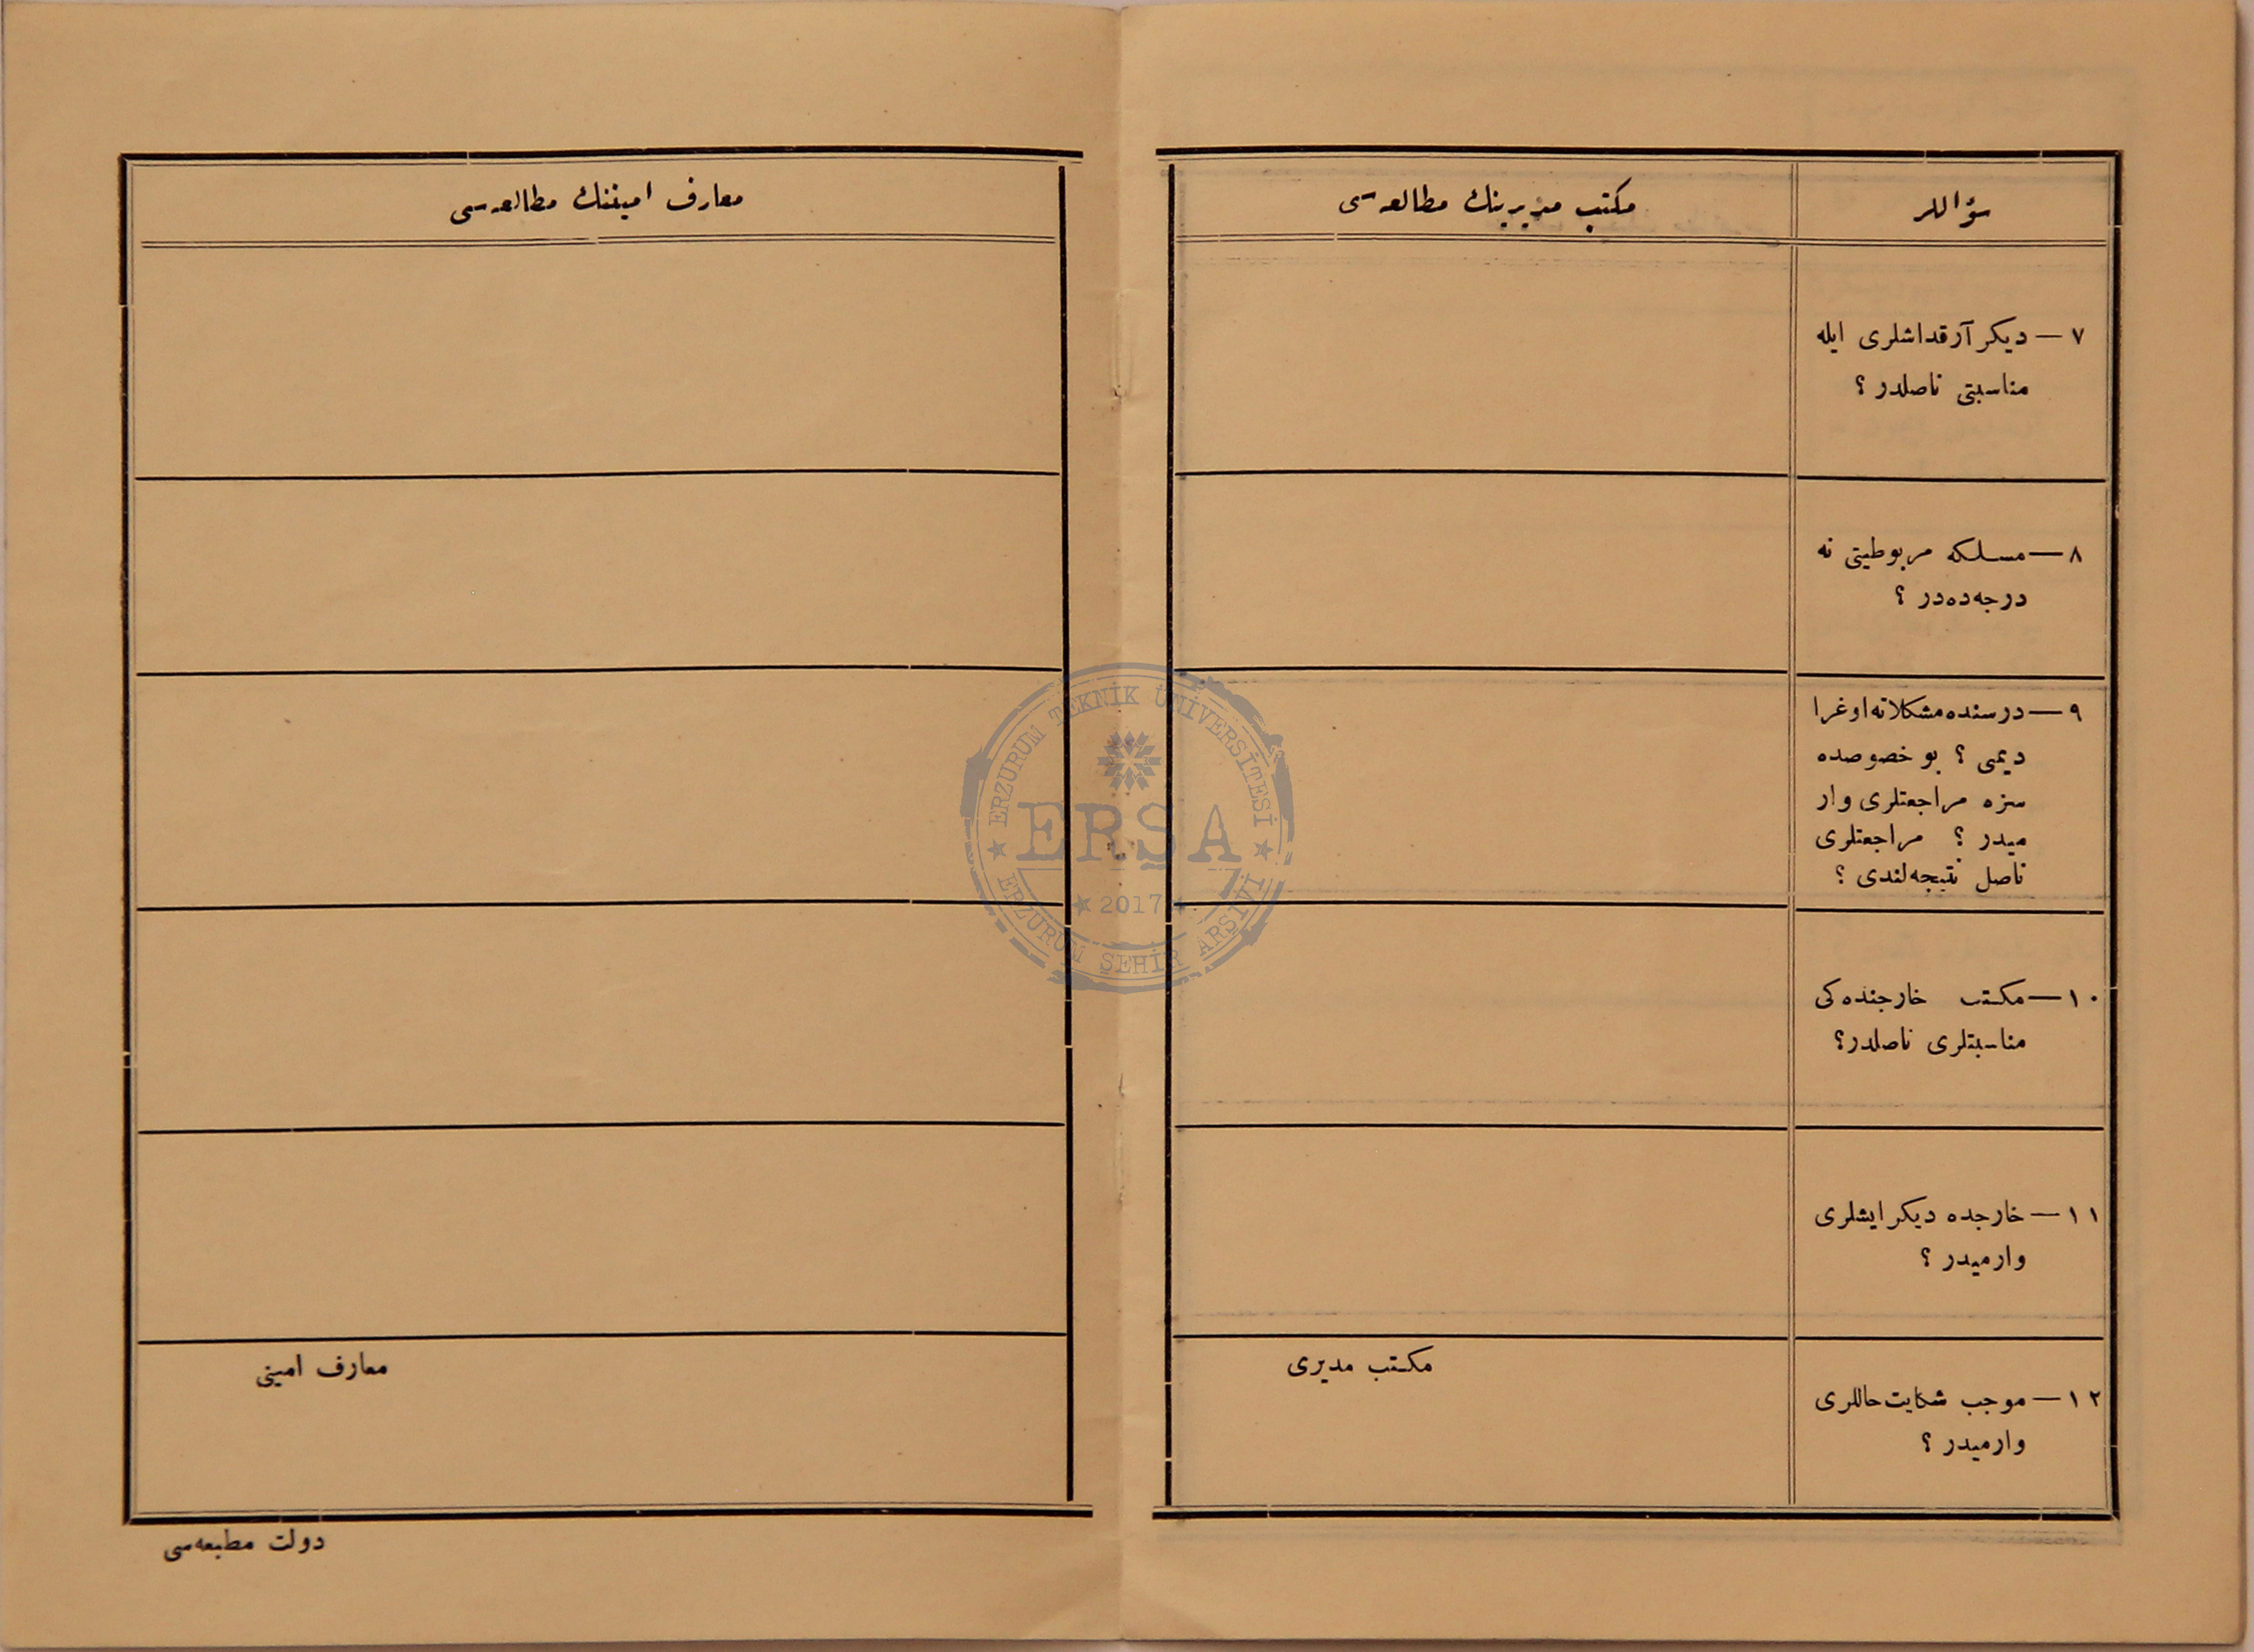 سؤاللر
مكتب مديرينك مطالعه‌سى
٧ — ديكر آرقداشلرى ايله
مناسبتى ناصلدر ؟
٨ — مسلكه مربوطيتى نه
درجه‌ده‌در ؟
٩ — درسنده مشكلاته اوغرا
ديمى ؟ بو خصوصده
سزه مراجعتلرى وار
ميدر ؟ مراجعتلرى
ناصل نتيجه‌لندى ؟
١٠ — مكتب خارجنده‌كى
مناسبتلرى ناصلدر؟
١١ — خارجده ديكر ايشلرى
وارميدر ؟
١٢ — موجب شكايت حاللرى
وارميدر ؟
مكتب مديرى
معارف امیننك مطالعه‌سى
معارف امينى
دولت مطبعه‌سى
ERZURUM TEKNİK ÜNİVERSİTESİ
ERŞA
2017
ERZURUM ŞEHİR ARŞİVİ